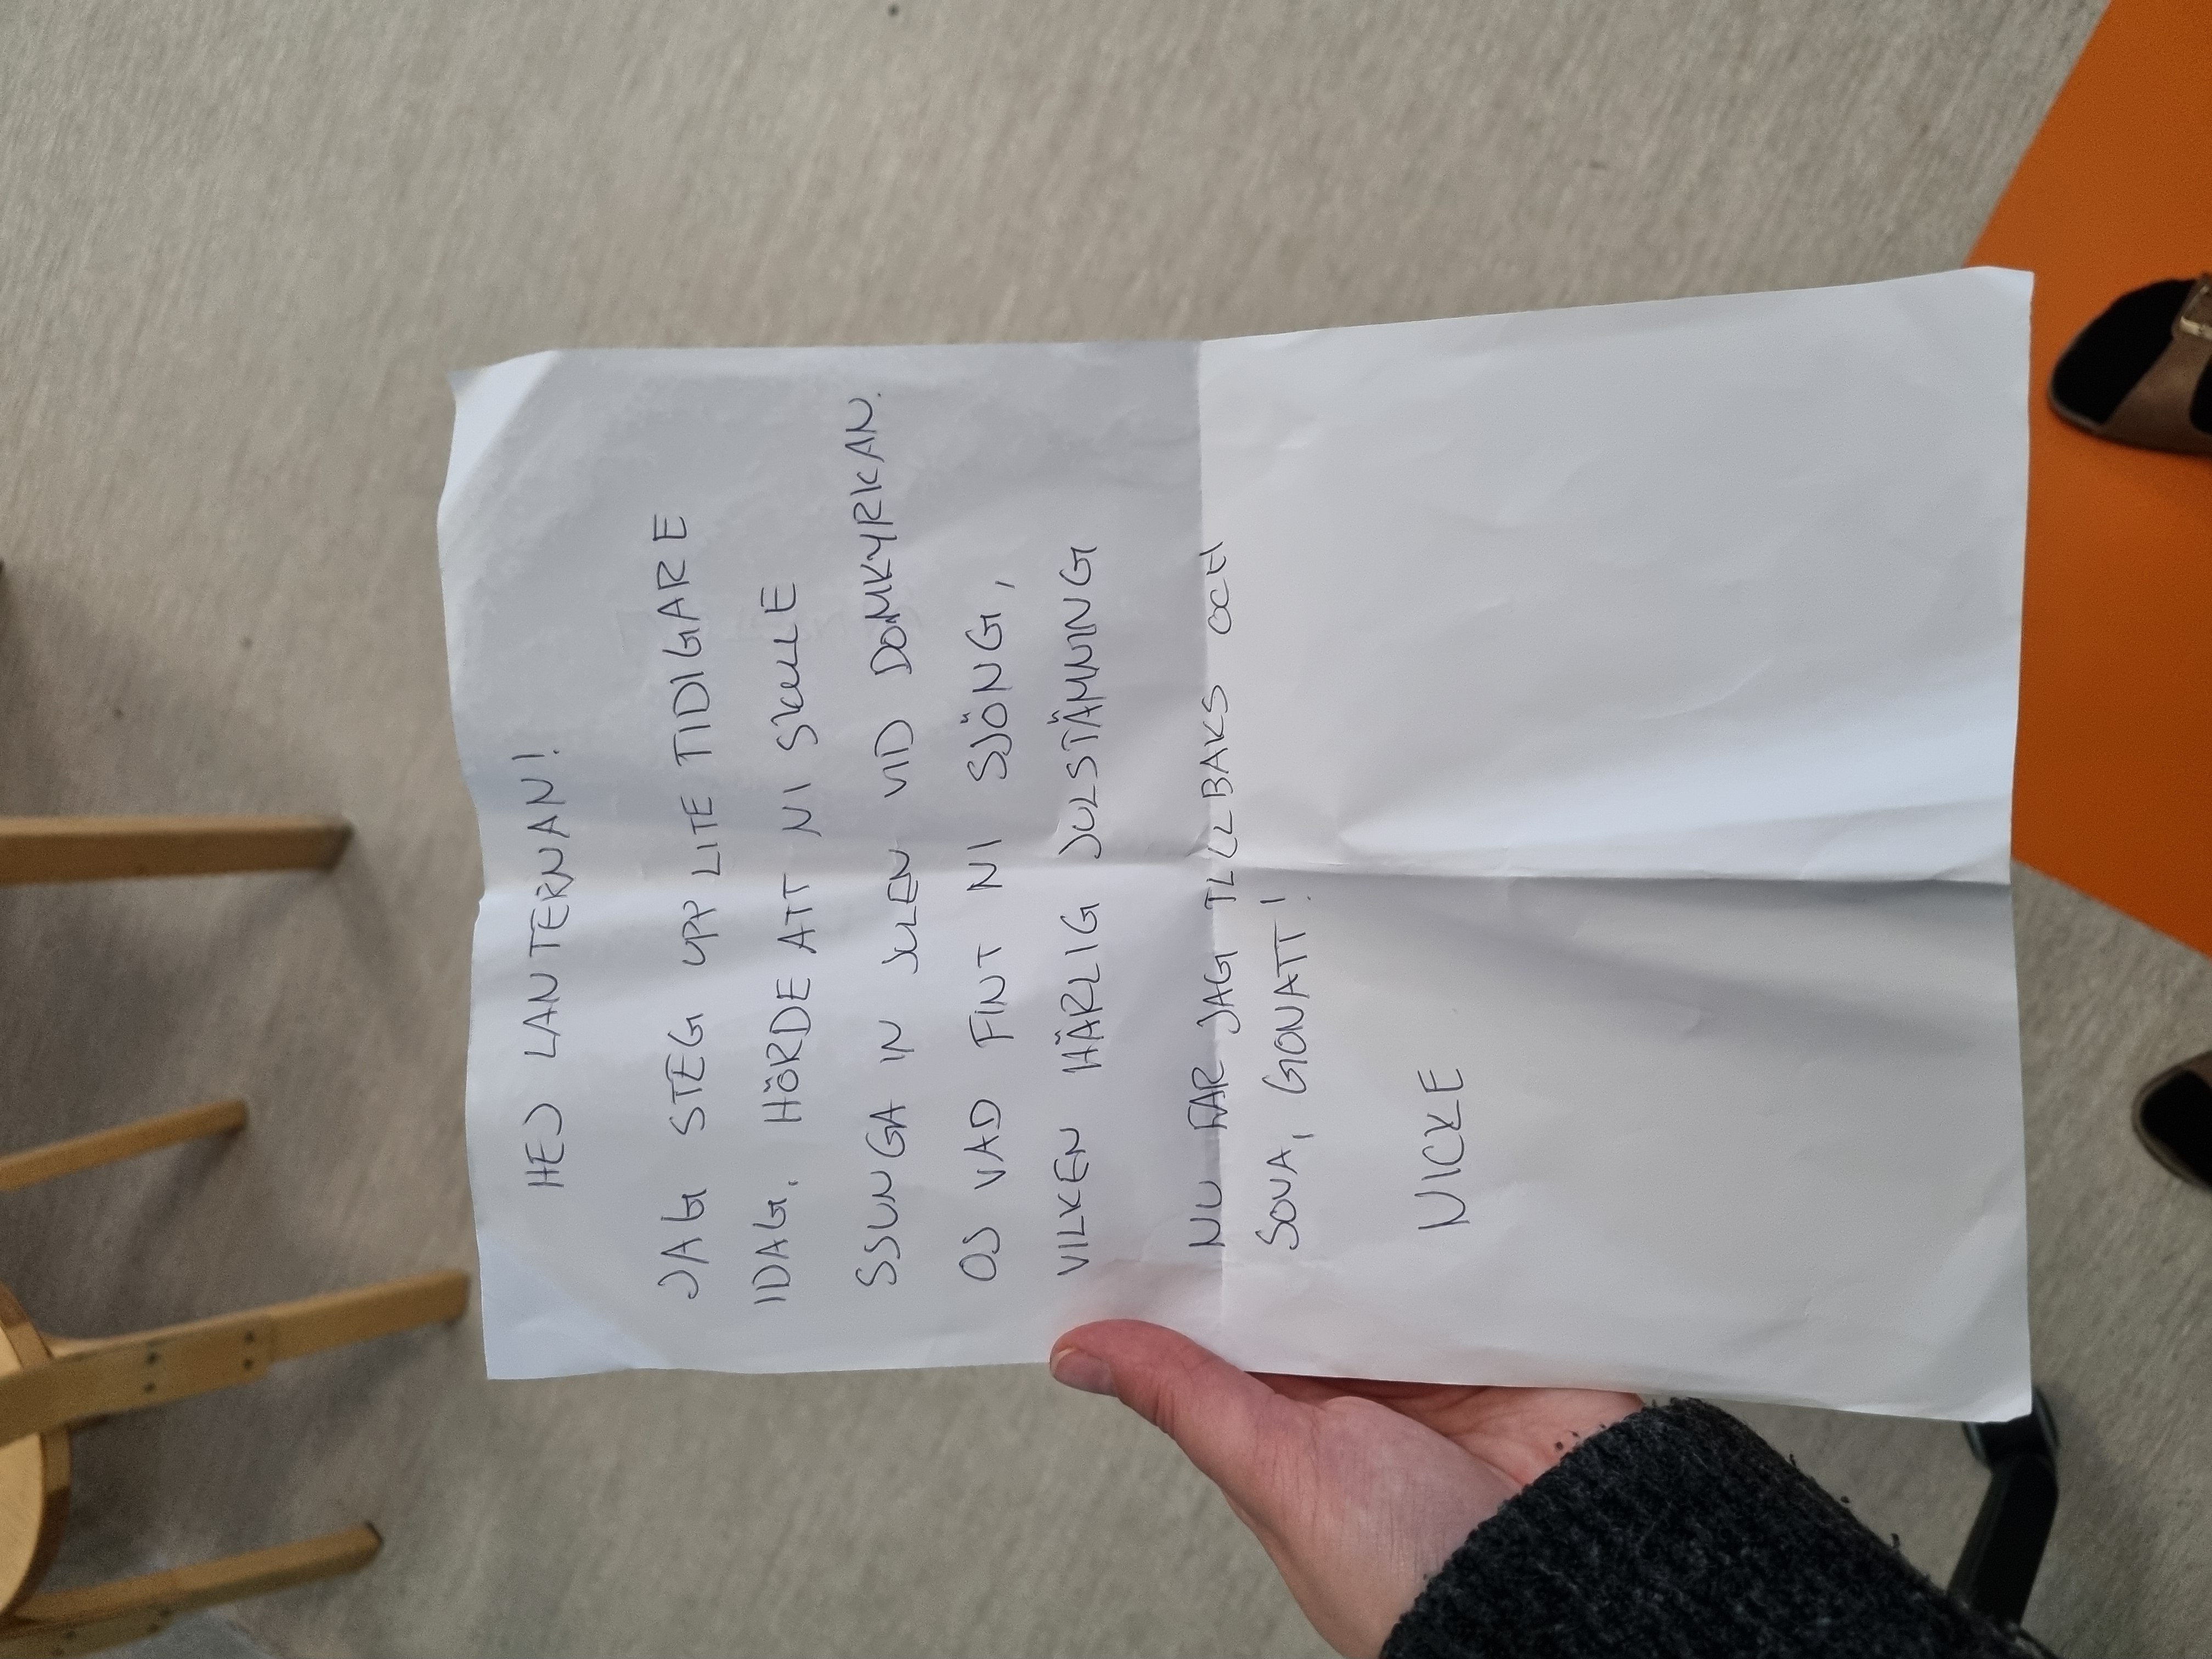 HEJ LANTERNAN!
JAG STEG UPP LITE TIDIGARE
IDAG, HÖRDE ATT NI SKULLE
SSUNGA IN JULEN VID DOMKYRKAN.
OJ VAD FINT NI SJÖNG,
VILKEN HÄRLIG JULSTÄMNING
NU FAR JAG TILLBAKS OCH
SOVA, GONATT!
NICKE